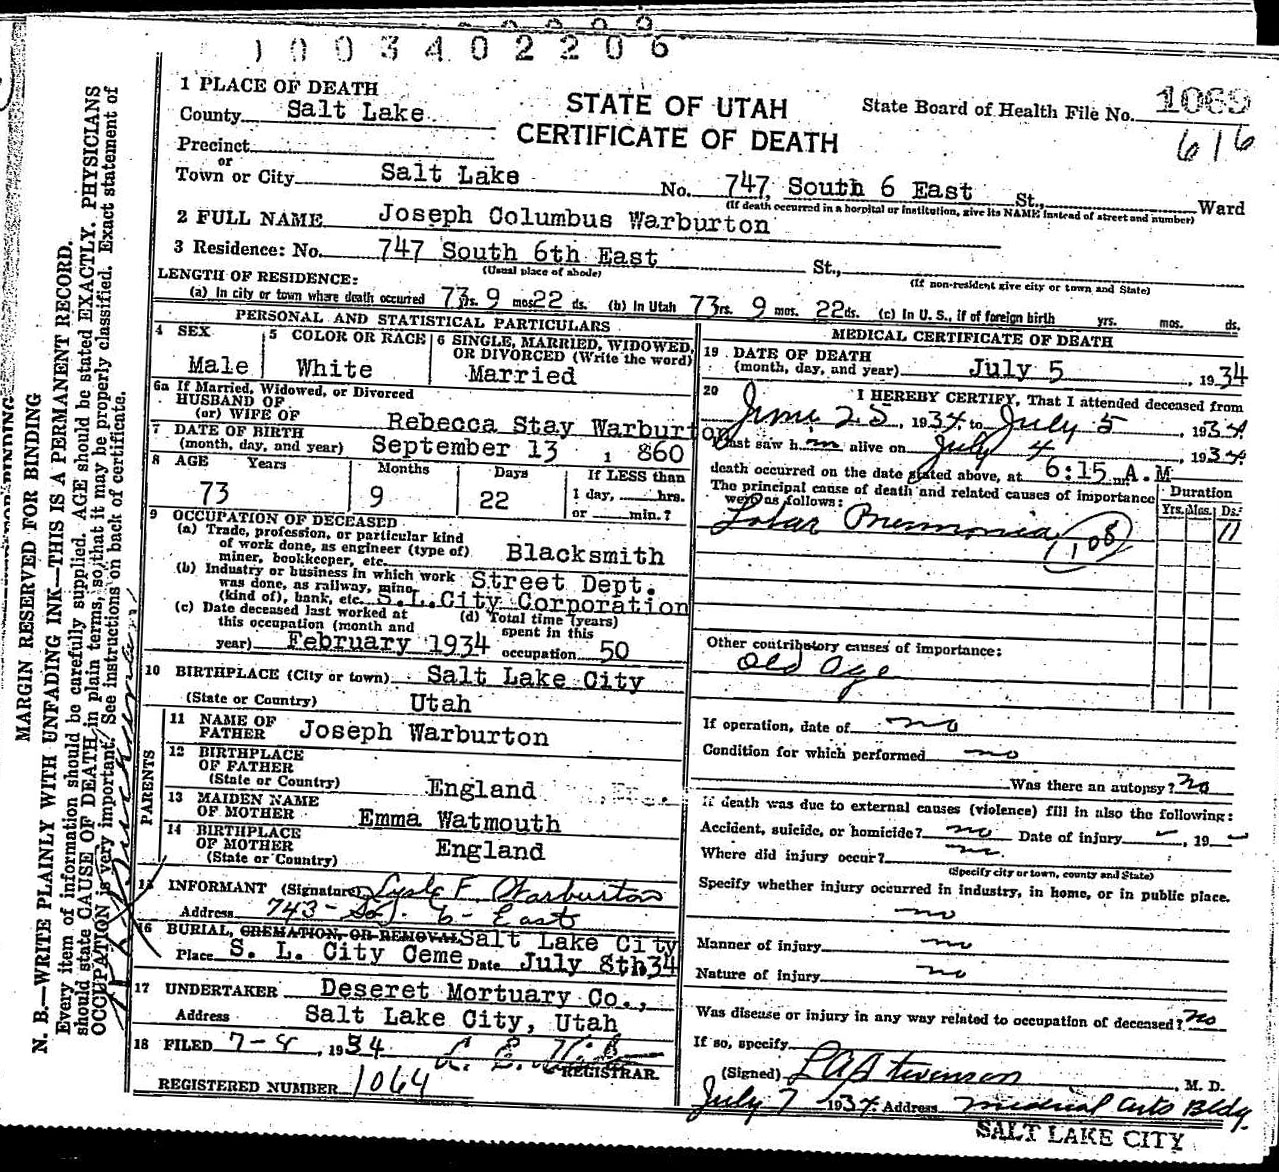 1003402206
1 PLACE OF DEATH
County Salt Lake
STATE OF UTAH
CERTIFICATE OF DEATH
State Board of Health File No. 1069
616
Precinct
or
Town or City Salt Lake No. 747, South 6 East St., Ward
(If death occurred in a hospital or institution, give its NAME instead of street and number)
2 FULL NAME Joseph Columbus Warburton
3 Residence: No. 747 South 6th East St.,
(Usual place of abode) (If non-resident give city or town and State)
LENGTH OF RESIDENCE:
(a) In city or town where death occurred 73 yrs. 9 mos. 22 ds. (b) In Utah 73 yrs. 9 mos. 22 ds. (c) In U. S., if of foreign birth yrs. mos. ds.
PERSONAL AND STATISTICAL PARTICULARS
4 SEX
Male
5 COLOR OR RACE
White
6 SINGLE, MARRIED, WIDOWED,
OR DIVORCED (Write the word)
Married
6a If Married, Widowed, or Divorced
HUSBAND OF
(or) WIFE OF Rebecca Stay Warburton
7 DATE OF BIRTH
(month, day, and year) September 13 1860
8 AGE Years Months Days If LESS than
73 9 22 1 day, hrs.
or min.?
9 OCCUPATION OF DECEASED
(a) Trade, profession, or particular kind
of work done, as engineer (type of)
miner, bookkeeper, etc. Blacksmith
(b) Industry or business in which work
was done, as railway, mine
(kind of), bank, etc. Street Dept.
S.L.City Corporation
(c) Date deceased last worked at
this occupation (month and
year) February 1934
(d) Total time (years)
spent in this
occupation 50
10 BIRTHPLACE (City or town) Salt Lake City
(State or Country) Utah
PARENTS
11 NAME OF
FATHER Joseph Warburton
12 BIRTHPLACE
OF FATHER
(State or Country) England
13 MAIDEN NAME
OF MOTHER Emma Watmouth
14 BIRTHPLACE
OF MOTHER
(State or Country) England
15 INFORMANT (Signature) Lysle F. Warburton
Address 743 - So. 6 - East
16 BURIAL, CREMATION, OR REMOVAL Salt Lake City
Place S. L. City Ceme Date July 8th 34
17 UNDERTAKER Deseret Mortuary Co.,
Address Salt Lake City, Utah
18 FILED 7-8, 1934
REGISTRAR.
REGISTERED NUMBER 1064
MEDICAL CERTIFICATE OF DEATH
19 DATE OF DEATH
(month, day, and year) July 5, 1934
20 I HEREBY CERTIFY, That I attended deceased from
June 25, 1934 to July 5, 1934.
I last saw h m alive on July 4, 1934.
death occurred on the date stated above, at 6:15 m A.M
The principal cause of death and related causes of importance
were as follows:
Duration
Yrs. Mos. Ds.
Lobar Pneumonia 108 11
Other contributory causes of importance:
Old Age
If operation, date of no
Condition for which performed no
Was there an autopsy? no
If death was due to external causes (violence) fill in also the following:
Accident, suicide, or homicide? no Date of injury , 19
Where did injury occur? no
(Specify city or town, county and State)
Specify whether injury occurred in industry, in home, or in public place.
no
Manner of injury no
Nature of injury no
Was disease or injury in any way related to occupation of deceased? no
If so, specify
(Signed) L A Stevenson, M. D.
July 7 1934. Address Medical Arts Bldg.
SALT LAKE CITY
MARGIN RESERVED FOR BINDING
N. B.—WRITE PLAINLY WITH UNFADING INK—THIS IS A PERMANENT RECORD.
Every item of information should be carefully supplied. AGE should be stated EXACTLY. PHYSICIANS
should state CAUSE OF DEATH in plain terms, so that it may be properly classified. Exact statement of
OCCUPATION is very important. See instructions on back of certificate.